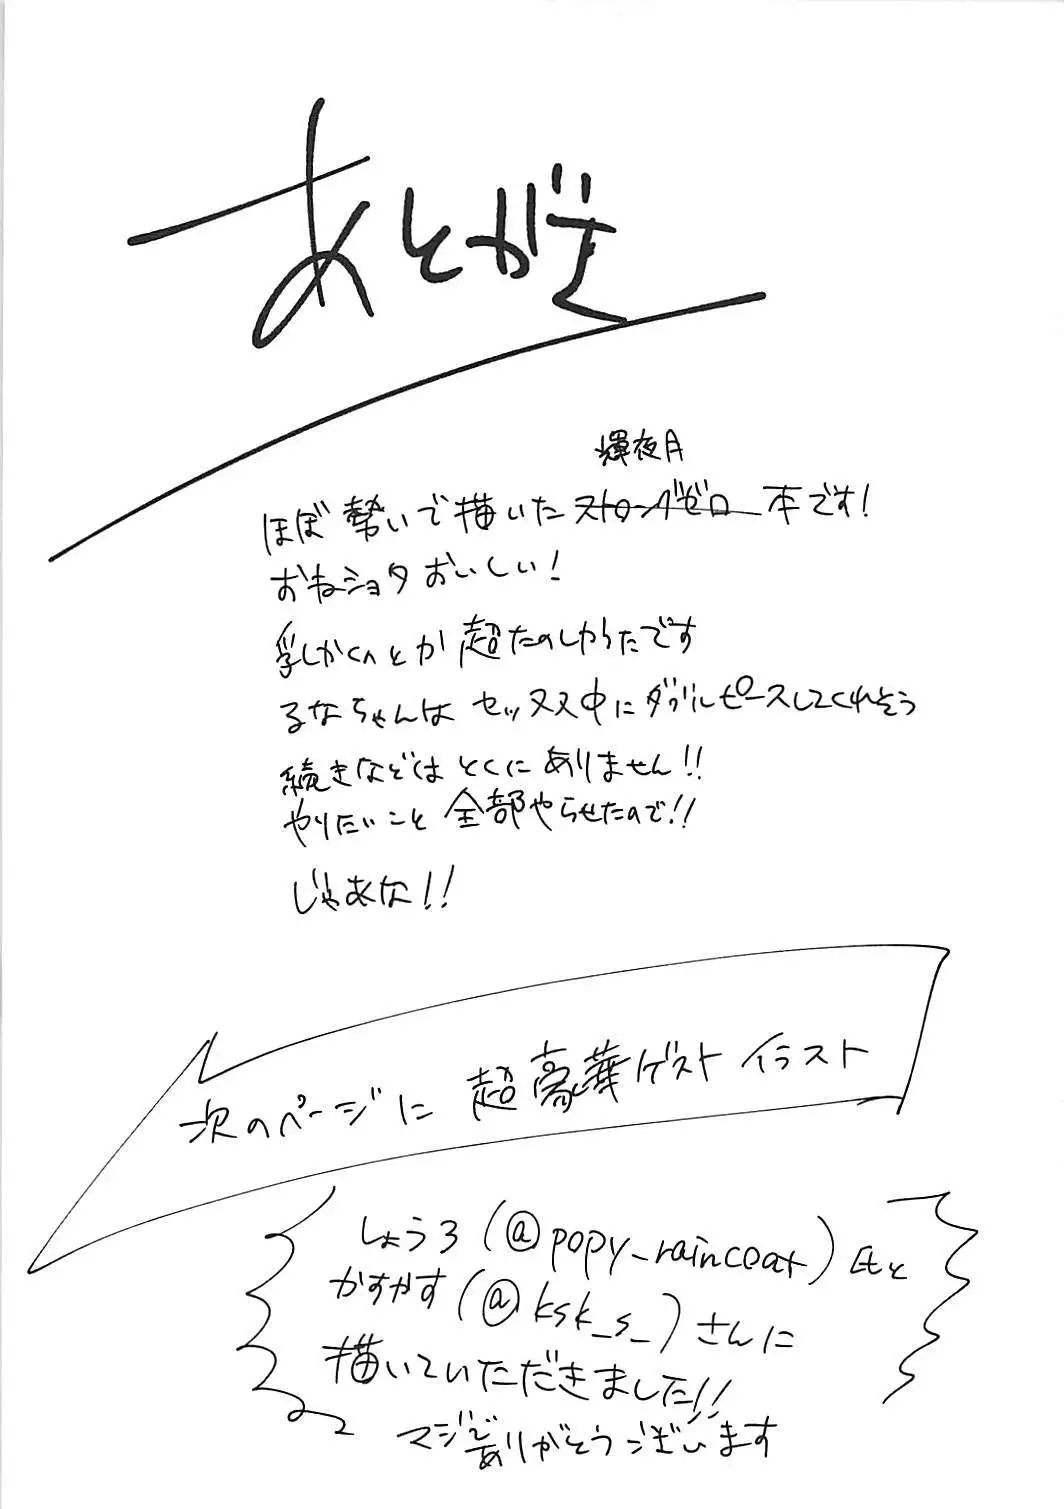 あとがき
輝夜月
ほぼ勢いで描いたストロングゼロ本です!
おねショタおいしい!
乳しかくんとか超たのしかったです
るなちゃんはセッ双又中にダブルピースしてくれそう
続きなどはとくにありません!!
やりたいこと全部やらせたので!!
じゃあな!!
次のページに超豪華ゲストイラスト
しょうろ(@popy_raincoat)氏と
かすかす(@ksk_s_)さんに
描いていただきました!!
マジでありがとうございます